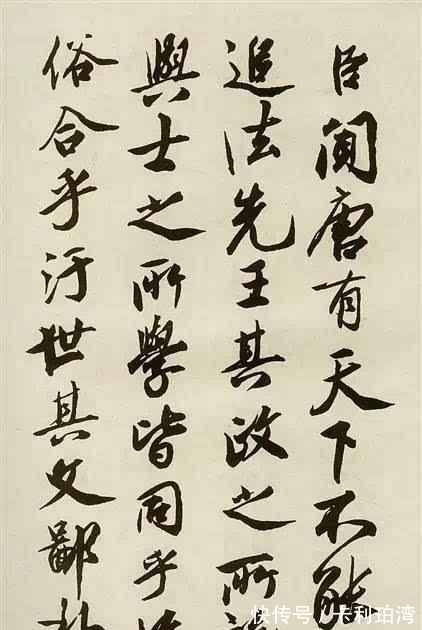 臣聞唐有天下不能
追法先王其政之所
興士之所學皆同乎
俗合乎汙世其文鄙
快传号/卡利珀湾